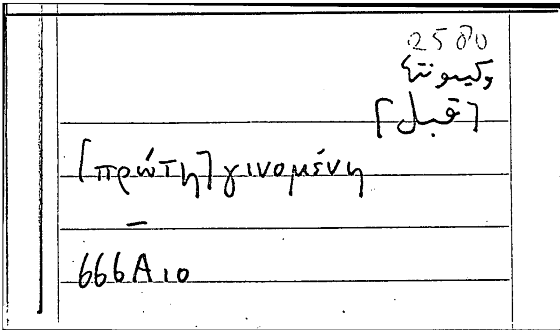 2580
وكينونتها
[قبل]
[πρώτη] γινομένη
–
666A10